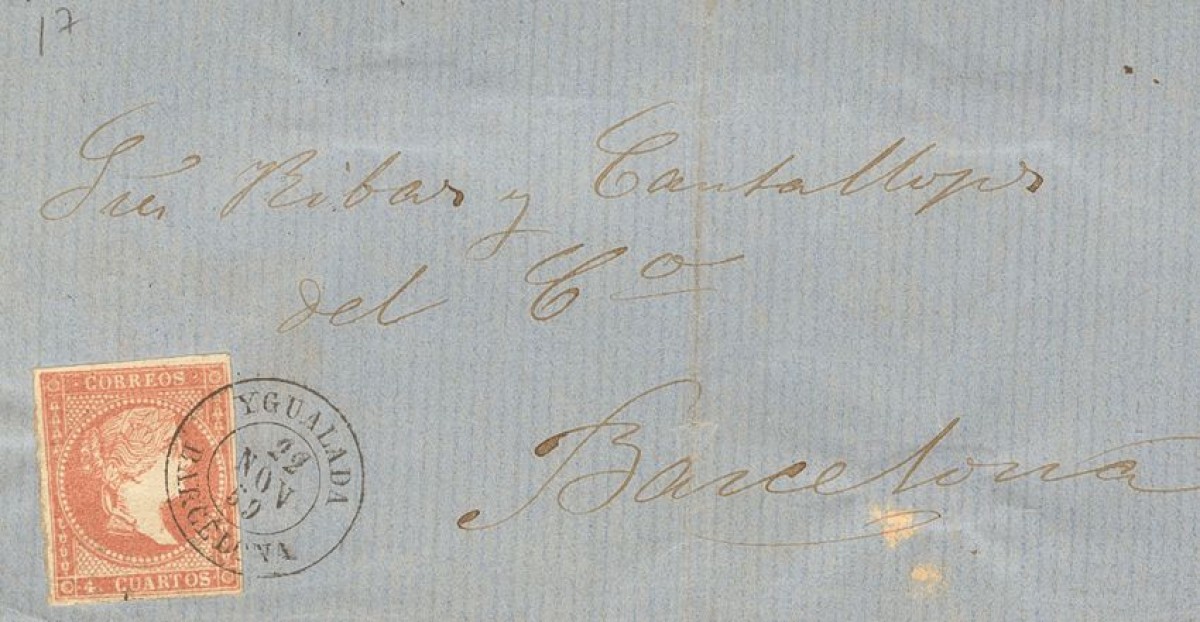 17
Sres Ribas y Cantallops
del Co
Barcelona
CORREOS
4. CUARTOS
YGUALADA
22
NOV
BARCELONA